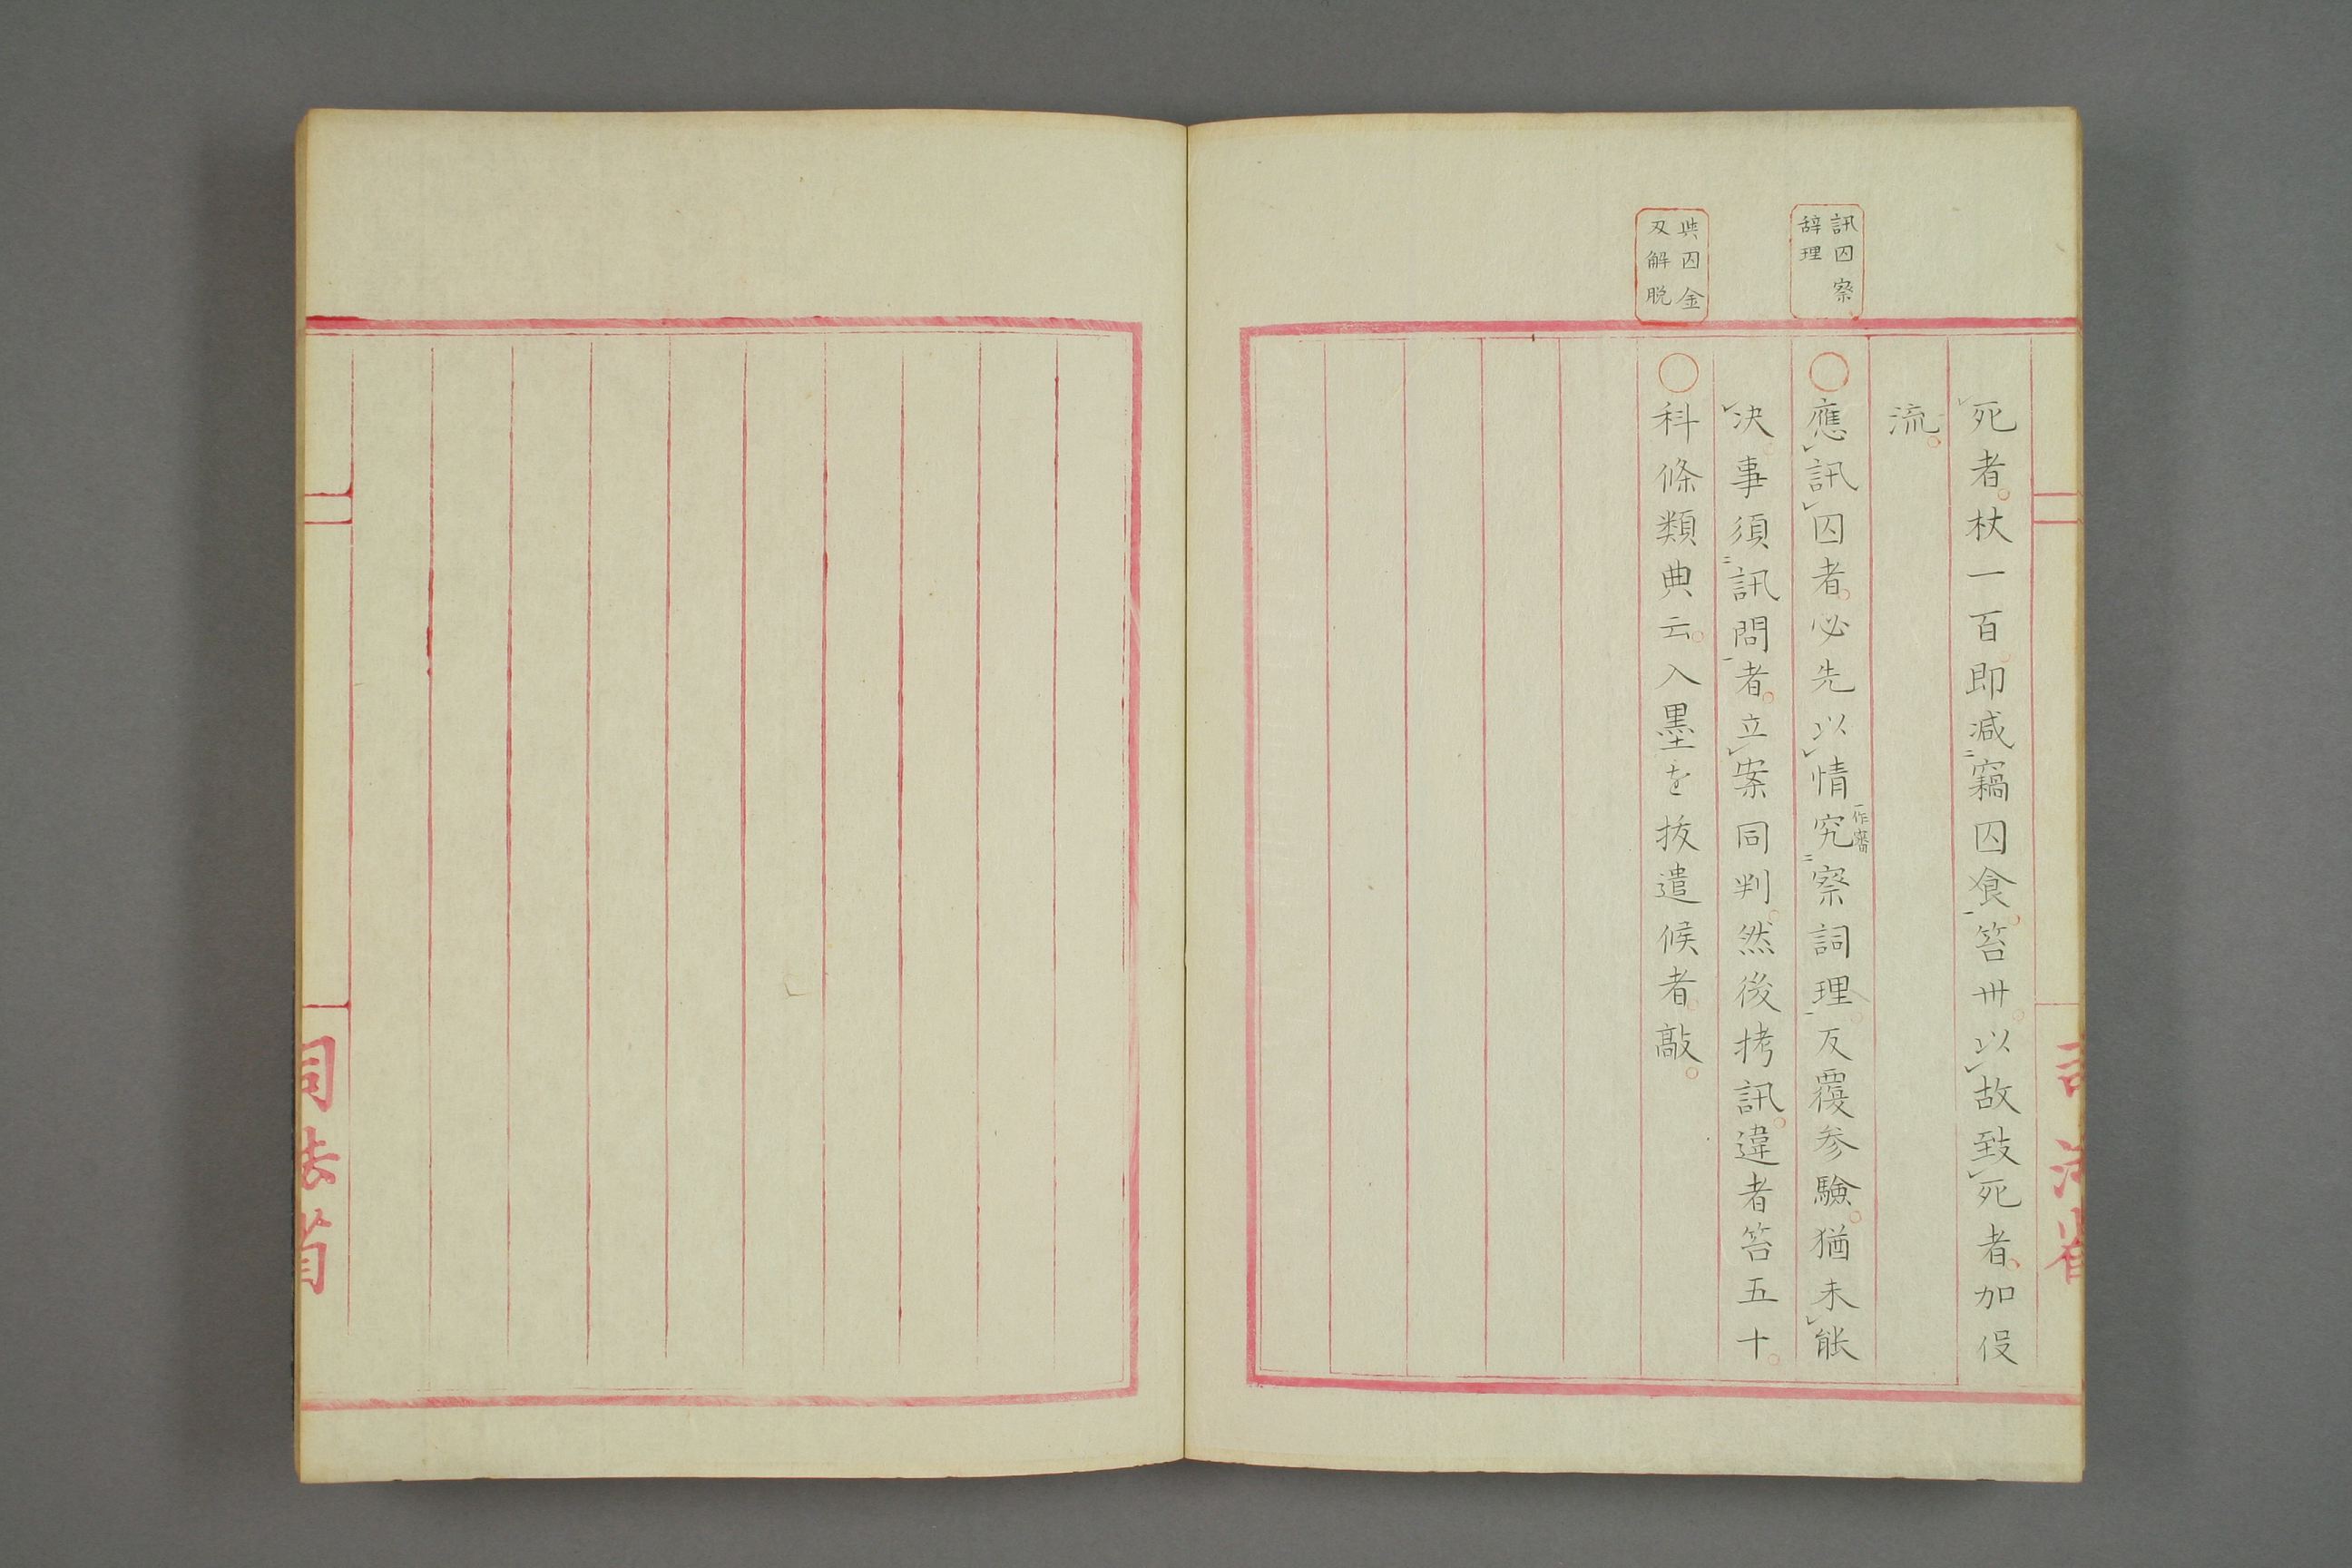 司法省
死者。杖一百。即減二竊囚食一。笞卅。以故致死者。加役
流。
訊囚察
辞理
〇應訊囚者。必先以情究二察詞理一。反覆参驗。猶未能
一作審
决。事須二訊問一者。立案同判。然後拷訊。違者笞五十。
與囚金
刃解脱
〇科條類典云。入墨を抜遣候者。敲。
司法省